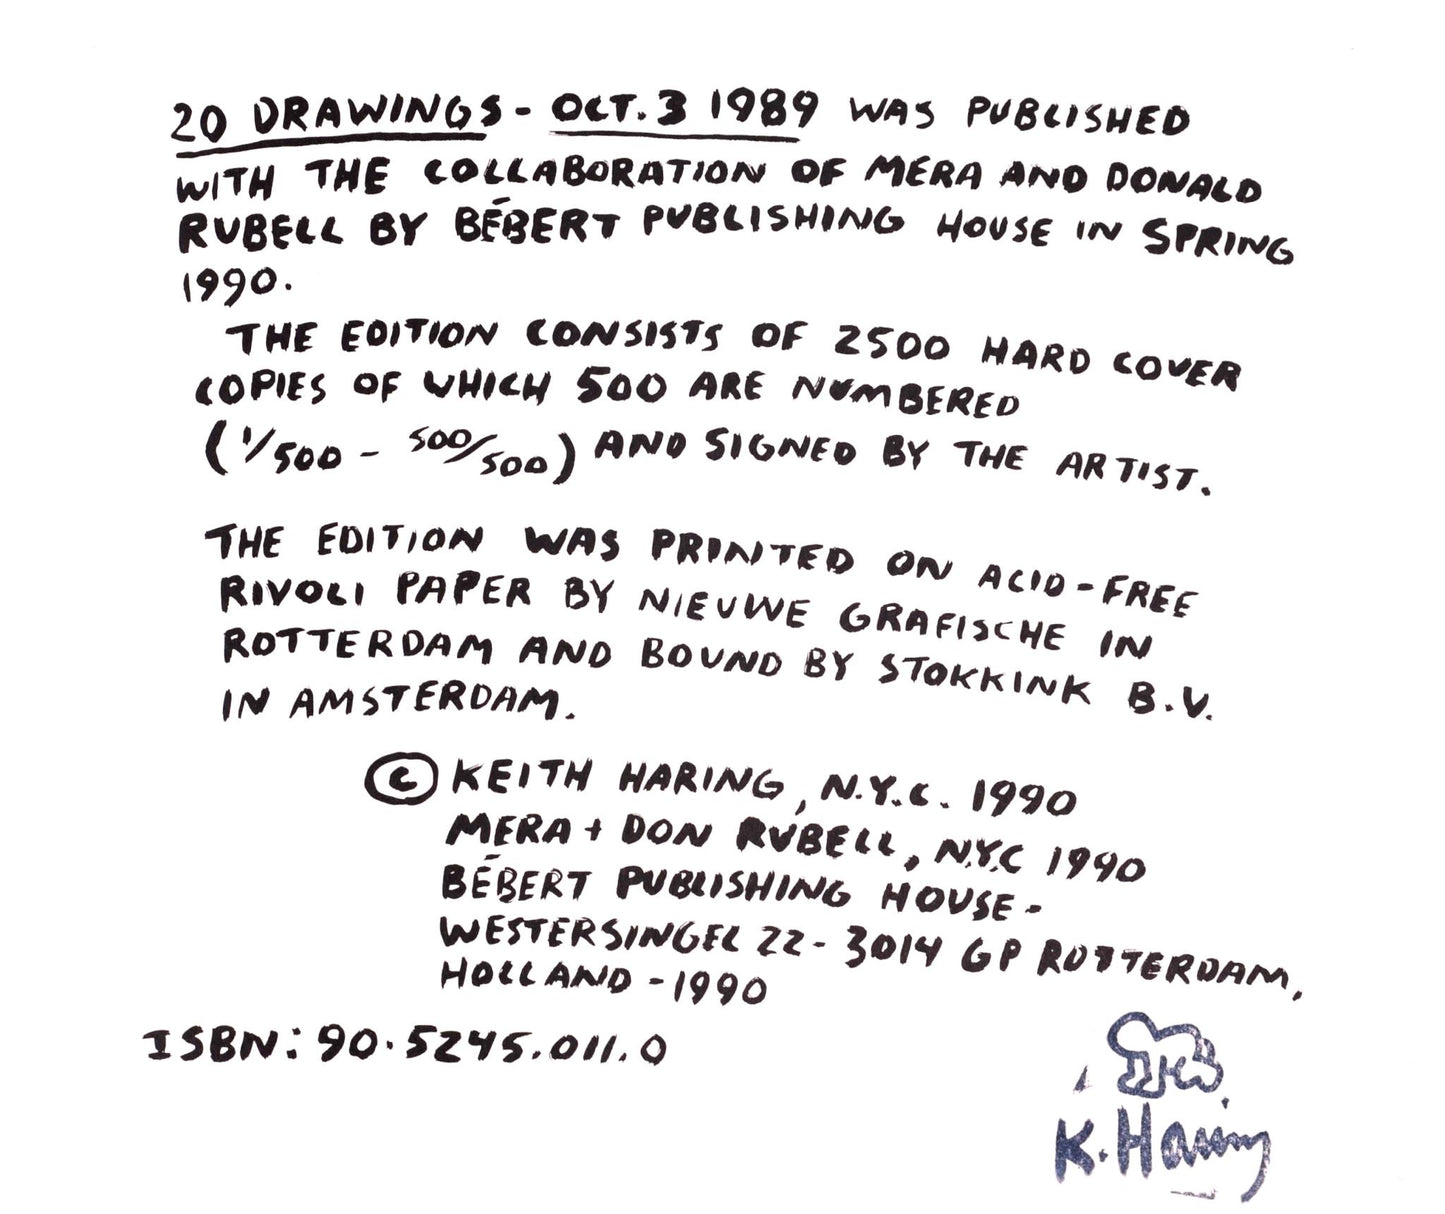 20 DRAWINGS - OCT. 3 1989 WAS PUBLISHED
WITH THE COLLABORATION OF MERA AND DONALD
RUBELL BY BÉBERT PUBLISHING HOUSE IN SPRING
1990.
THE EDITION CONSISTS OF 2500 HARD COVER
COPIES OF WHICH 500 ARE NUMBERED
(1/500 - 500/500) AND SIGNED BY THE ARTIST.
THE EDITION WAS PRINTED ON ACID-FREE
RIVOLI PAPER BY NIEUWE GRAFISCHE IN
ROTTERDAM AND BOUND BY STOKKINK B.V.
IN AMSTERDAM.
© KEITH HARING, N.Y.C. 1990
MERA + DON RUBELL, N.Y.C 1990
BÉBERT PUBLISHING HOUSE -
WESTERSINGEL 22 - 3014 GP ROTTERDAM,
HOLLAND - 1990
ISBN: 90.5245.011.0
K. Haring